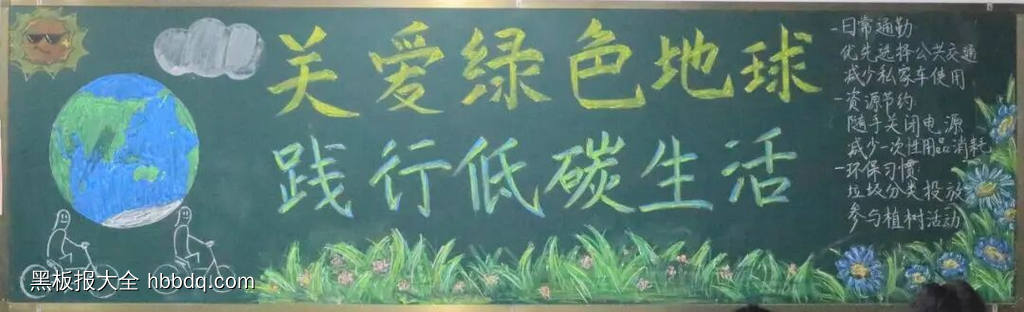 关爱绿色地球
践行低碳生活
-日常通勤
优先选择公共交通
减少私家车使用
-资源节约
随手关闭电源
减少一次性用品消耗
-环保习惯
垃圾分类投放
参与植树活动
黑板报大全 hbbdq.com